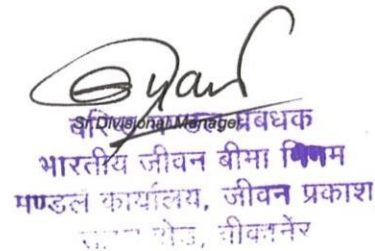 Sr. Divisional Manager
वरिष्ठ प्रबंधक
भारतीय जीवन बीमा निगम
मण्डल कार्यालय, जीवन प्रकाश
रोड, बीकानेर